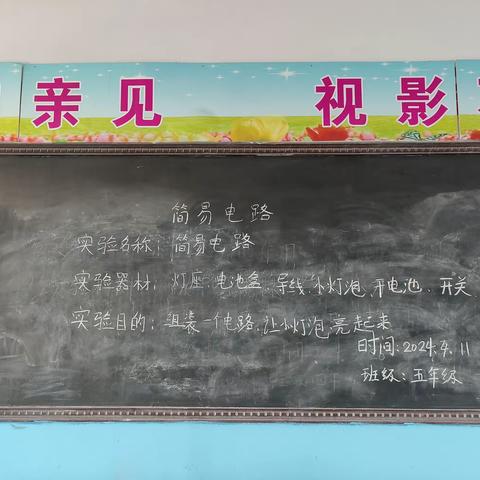 亲见 视影
简易电路
实验名称：简易电路
实验器材：灯座、电池盒、导线、小灯泡、干电池、开关
实验目的：组装一个电路，让小灯泡亮起来
时间：2024.4.11
班级：五年级